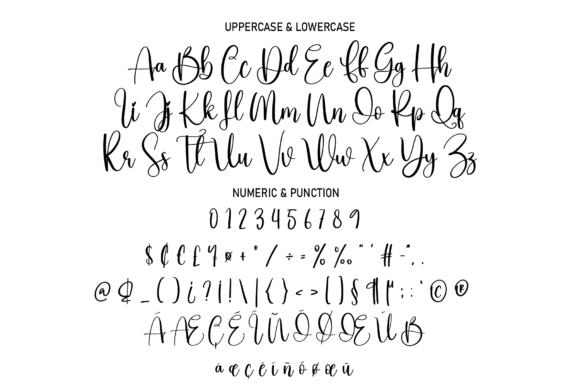 UPPERCASE & LOWERCASE
Aa Bb Cc Dd Ee Ff Gg Hh
Ii Jj Kk Ll Mm Nn Oo Pp Qq
Rr Ss Tt Uu Vv Ww Xx Yy Zz
NUMERIC & PUNCTION
0 1 2 3 4 5 6 7 8 9
$ ¢ € £ + * / ÷ = % ‰ " ' # - ^ , .
@ _ ( ) ¿ ? ¡ ! \ | { } < > [ ] § ¶ ; : ' © ®
Á Æ Ç É Í Ñ Ó Ø Œ Ú
á æ ç é í ñ ó ø œ ú